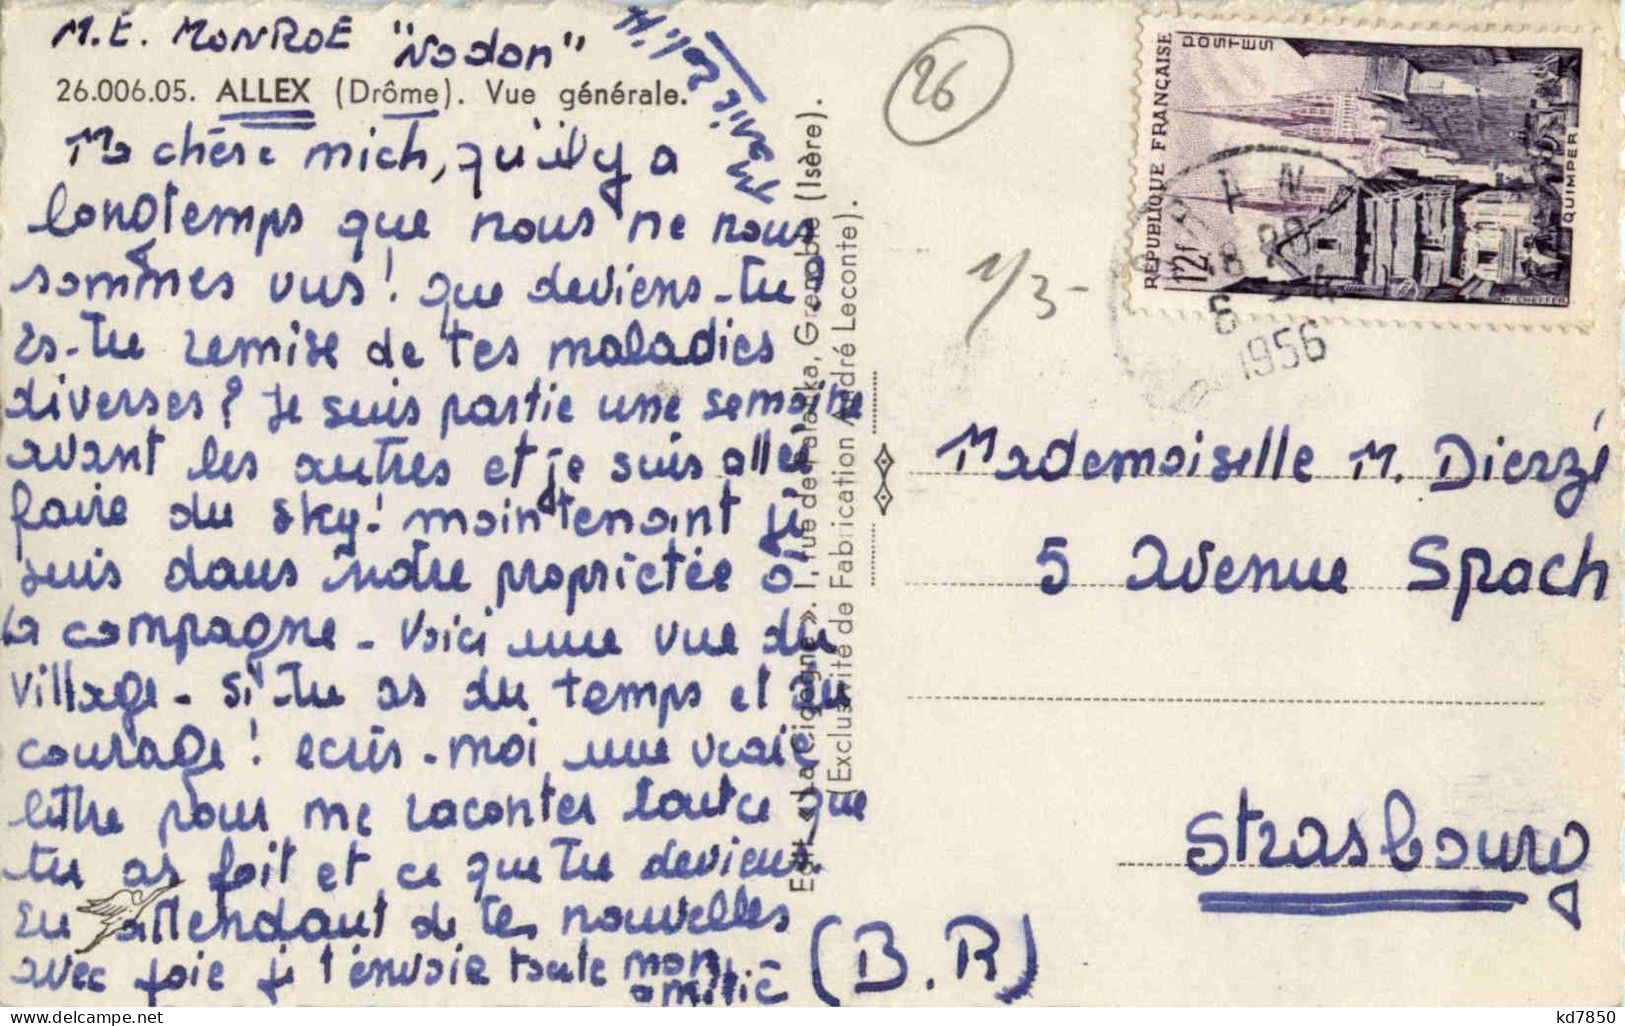 M.E. MONROE "Nodon"
26.006.05. ALLEX (Drôme). Vue générale.
Ma chère mich, qu'il y a
longtemps que nous ne nous
sommes vus! que deviens-tu?
Es-tu remise de tes maladies
diverses? Je suis partie une semaine
avant les autres et je suis allée
faire du sky! maintenant je
suis dans notre propriétée à
la compagne - Voici une vue du
village - si tu as du temps et du
courage! ecris-moi une vraie
lettre pour me raconter tout ce que
tu as fait et ce que tu deviens.
En attendant de tes nouvelles
avec joie je t'envoie toute mon
amitié
Edit. « La Cigogne ». 1, rue de Palanka, Grenoble (Isère).
(Exclusivité de Fabrication André Leconte).
26
1/3-
RÉPUBLIQUE FRANÇAISE
POSTES
12f
QUIMPER
18
6
1956
Mademoiselle M. Dierzé
5 Avenue Spach
Strasbourg
(B.R)
kd7850